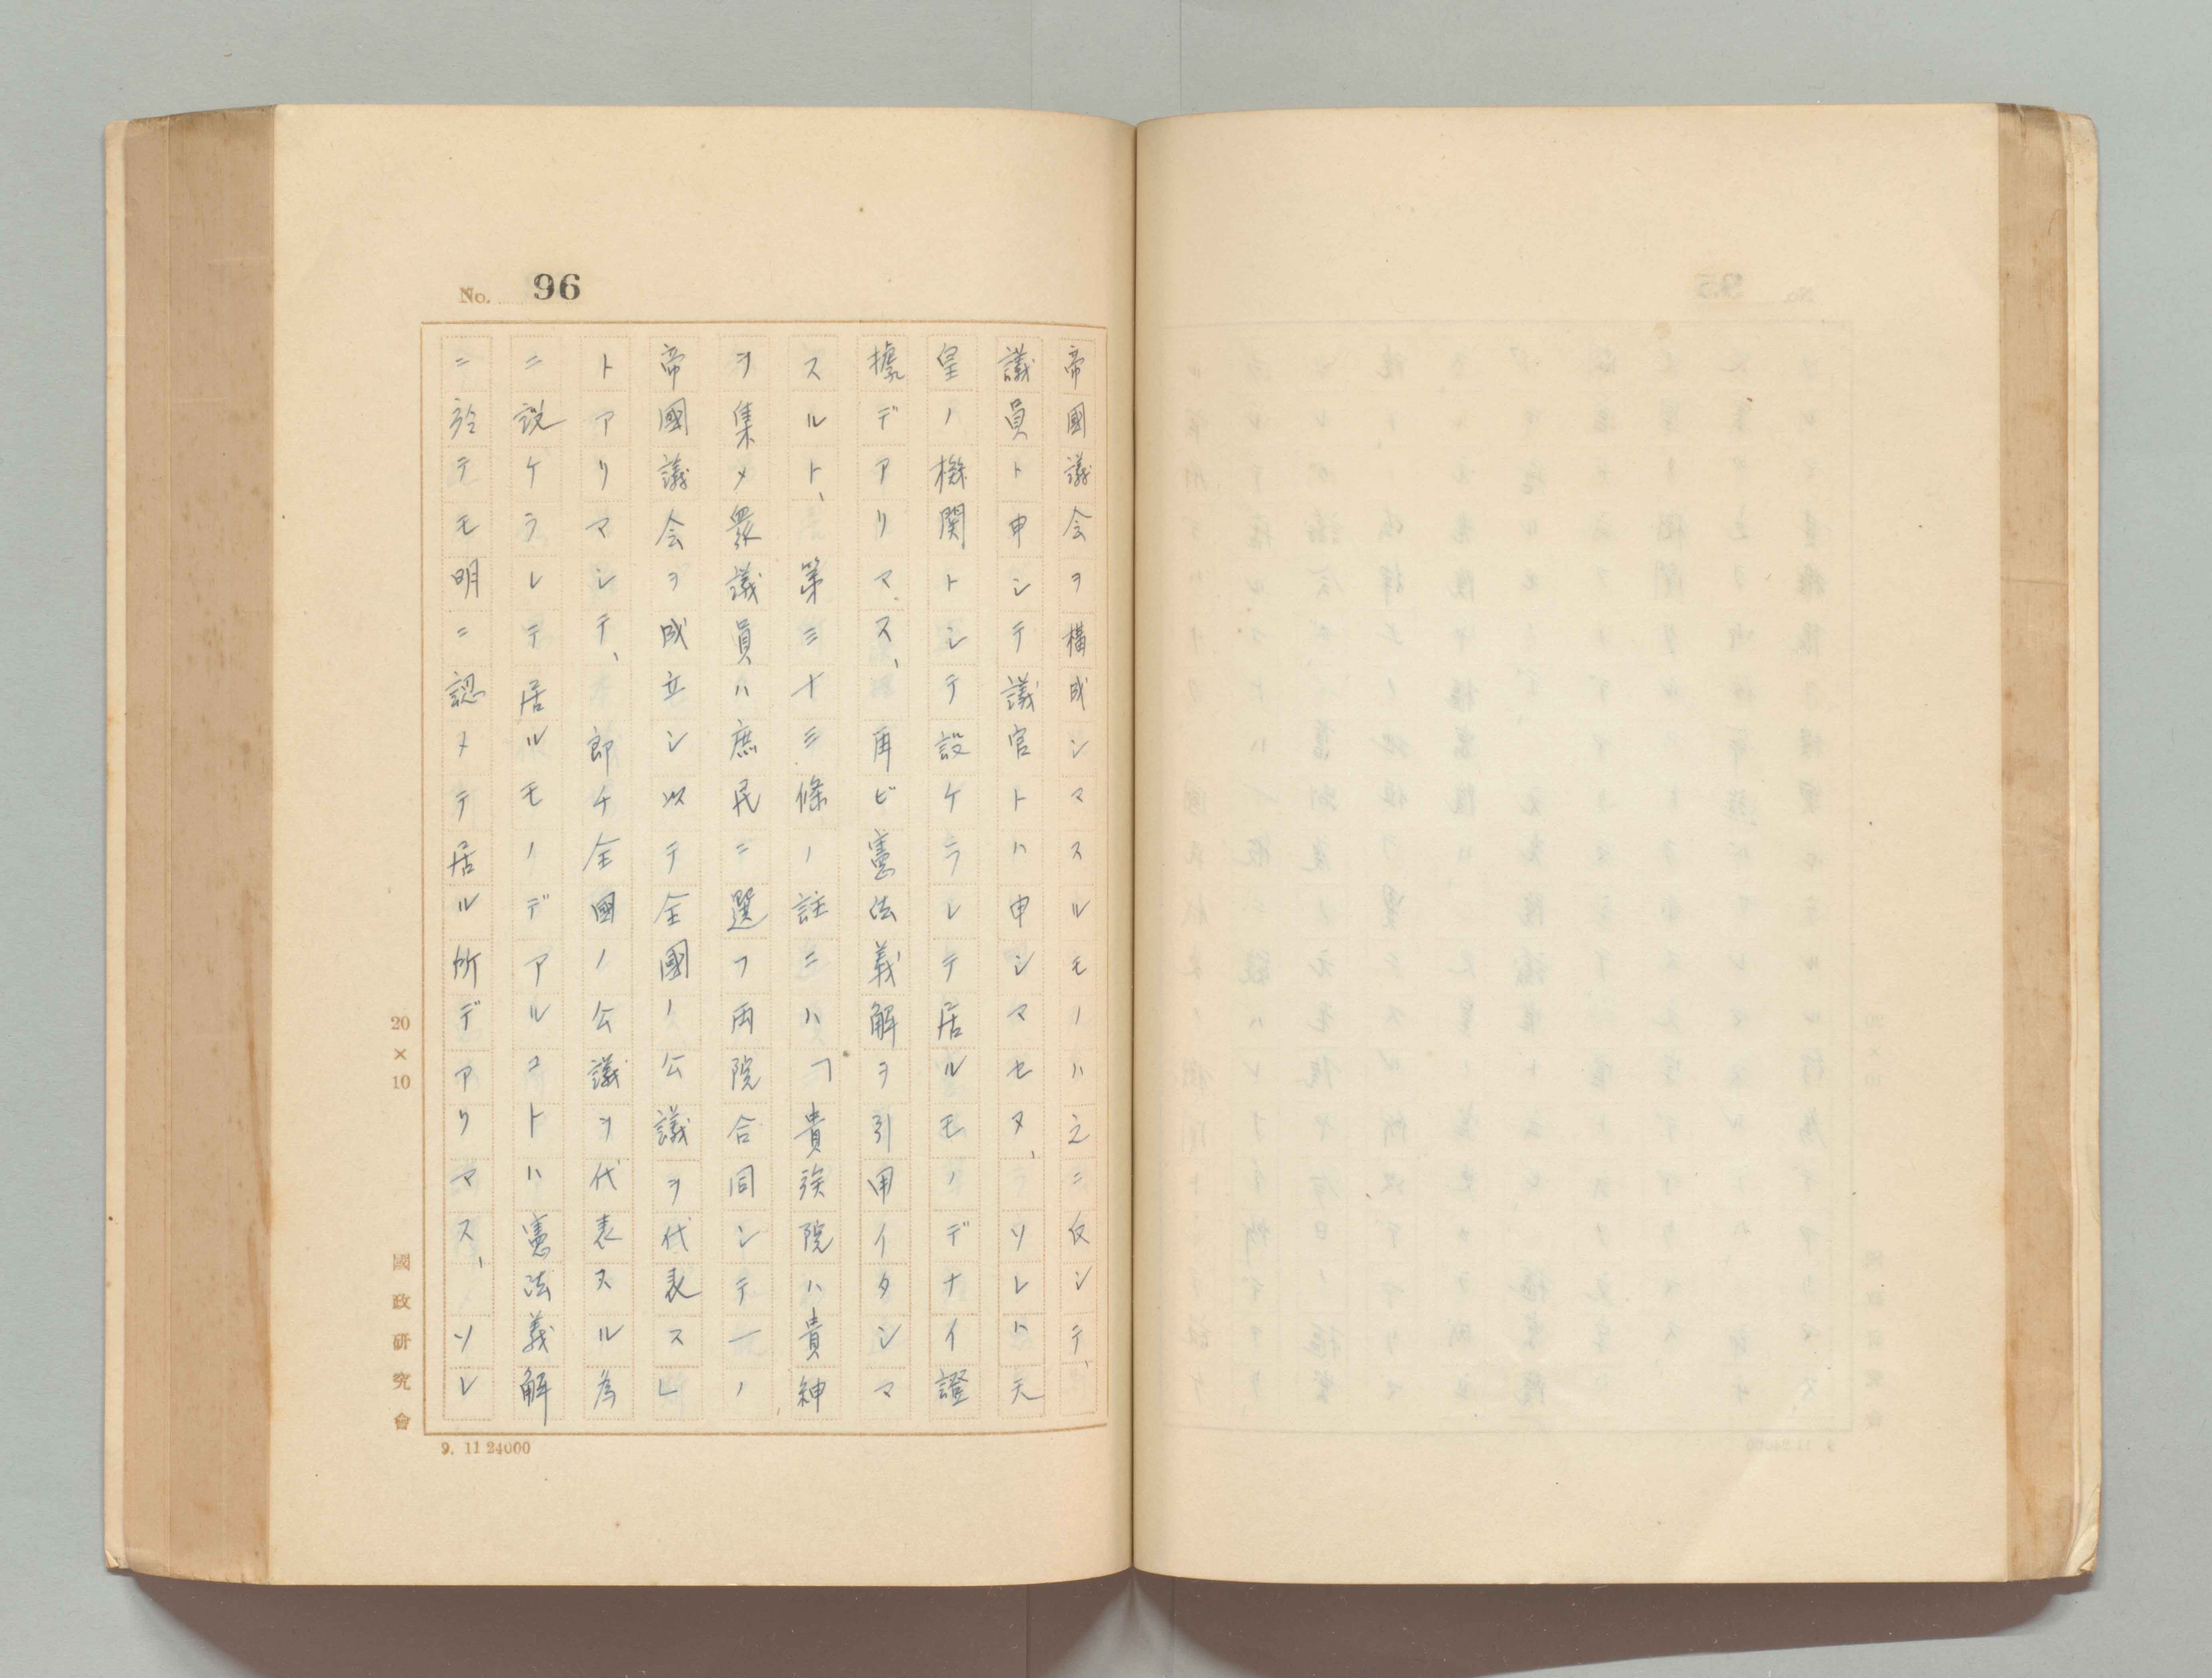 No. 96
帝國議会ヲ構成シマスルモノハ之ニ反シテ、
議員ト申シテ議官トハ申シマセヌ、ソレハ天
皇ノ機関トシテ設ケラレテ居ルモノデナイ證
據デアリマス、再ビ憲法義解ヲ引用イタシマ
スルト、第三十三條ノ註ニハ「貴族院ハ貴紳
ヲ集メ衆議員ハ庶民ニ選フ両院合同シテ一ノ
帝國議会ヲ成立シ以テ全國ノ公議ヲ代表ス」
トアリマシテ、即チ全國ノ公議ヲ代表スル為
ニ設ケラレテ居ルモノデアルコトハ憲法義解
ニ於テモ明ニ認メテ居ル所デアリマス、ソレ
20×10
國政研究會
9. 11 24000